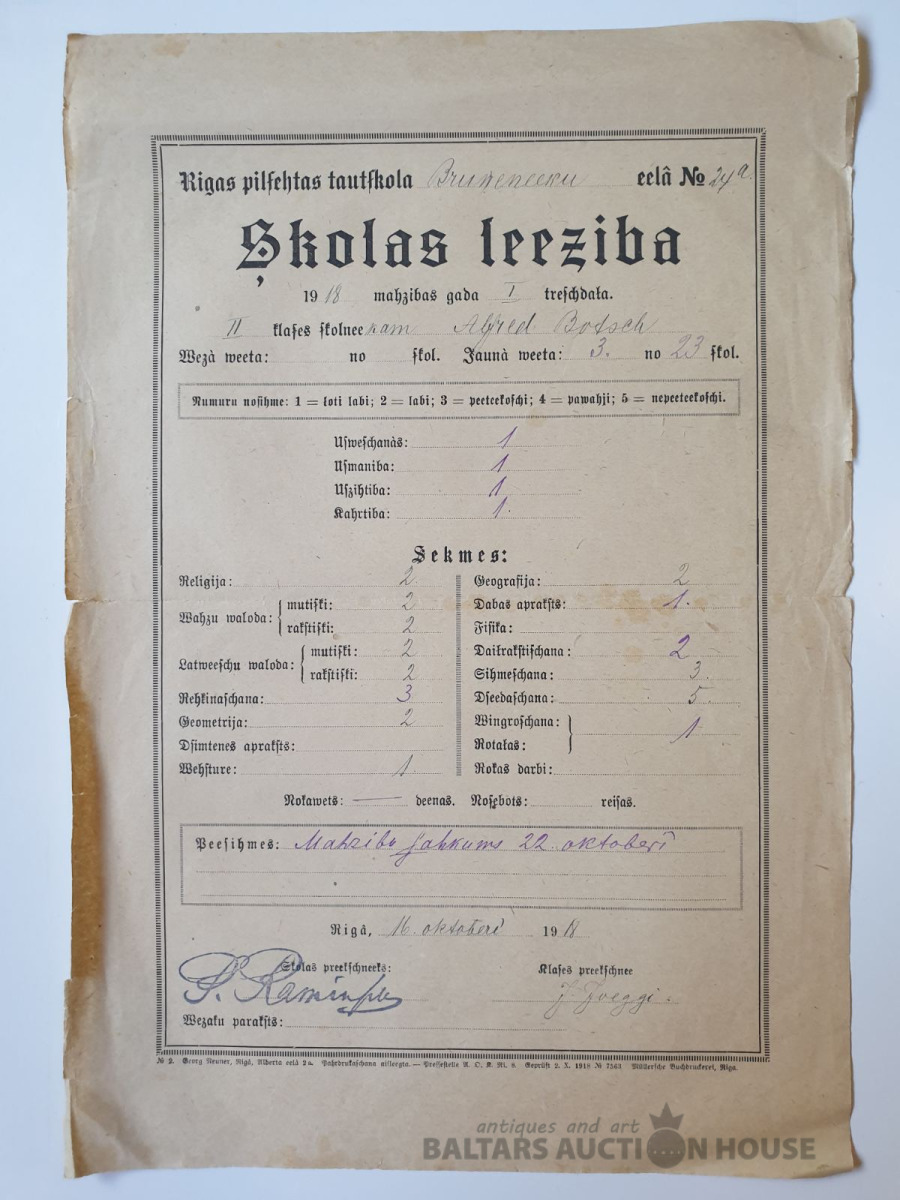 Rigas pilsehtas tautskola Bruneneeku eelâ № 24a
Skolas leeziba
1918 mahzibas gada I treschdaļa.
II klases skolneekam Alfred Botsch
Wezà weeta: no skol. Jaunà weeta: 3. no 23 skol.
Numuru nosihme: 1 = ļoti labi; 2 = labi; 3 = peeteekoschi; 4 = pawahji; 5 = nepeeteekoschi.
Usweschanàs: 1
Usmaniba: 1
Uszihtiba: 1
Kahrtiba: 1.
Sekmes:
Religija: 2
Wahzu waloda: mutiski: 2
rakstiski: 2
Latweeschu waloda: mutiski: 2
rakstiski: 2
Rehkinaschana: 3
Geometrija: 2
Dsimtenes apraksts:
Wehsture: 1
Geografija: 2
Dabas apraksts: 1.
Fisika:
Daiļrakstischana: 2
Sihmeschana: 3.
Dseedaschana: 5.
Wingroschana: 1
Rotaļas:
Rokas darbi:
Nokawets: — deenas. Noſebots: reisas.
Peesihmes: Mahzibu sahkums 22. oktoberî
Rigâ, 16. oktoberî 1918
Skolas preekschneeks:
Klases preekschnee
Wezaku paraksts:
№ 2. Georg Neuner, Rigâ, Alberta eelâ 2a. Pahrdrukaschana aisleegta. — Pressestelle A. O. K. Ri. 8. Geprüft 2. X. 1918 № 7563 Müllersche Buchdruckerei, Riga.
antiques and art
BALTARS AUCTION HOUSE